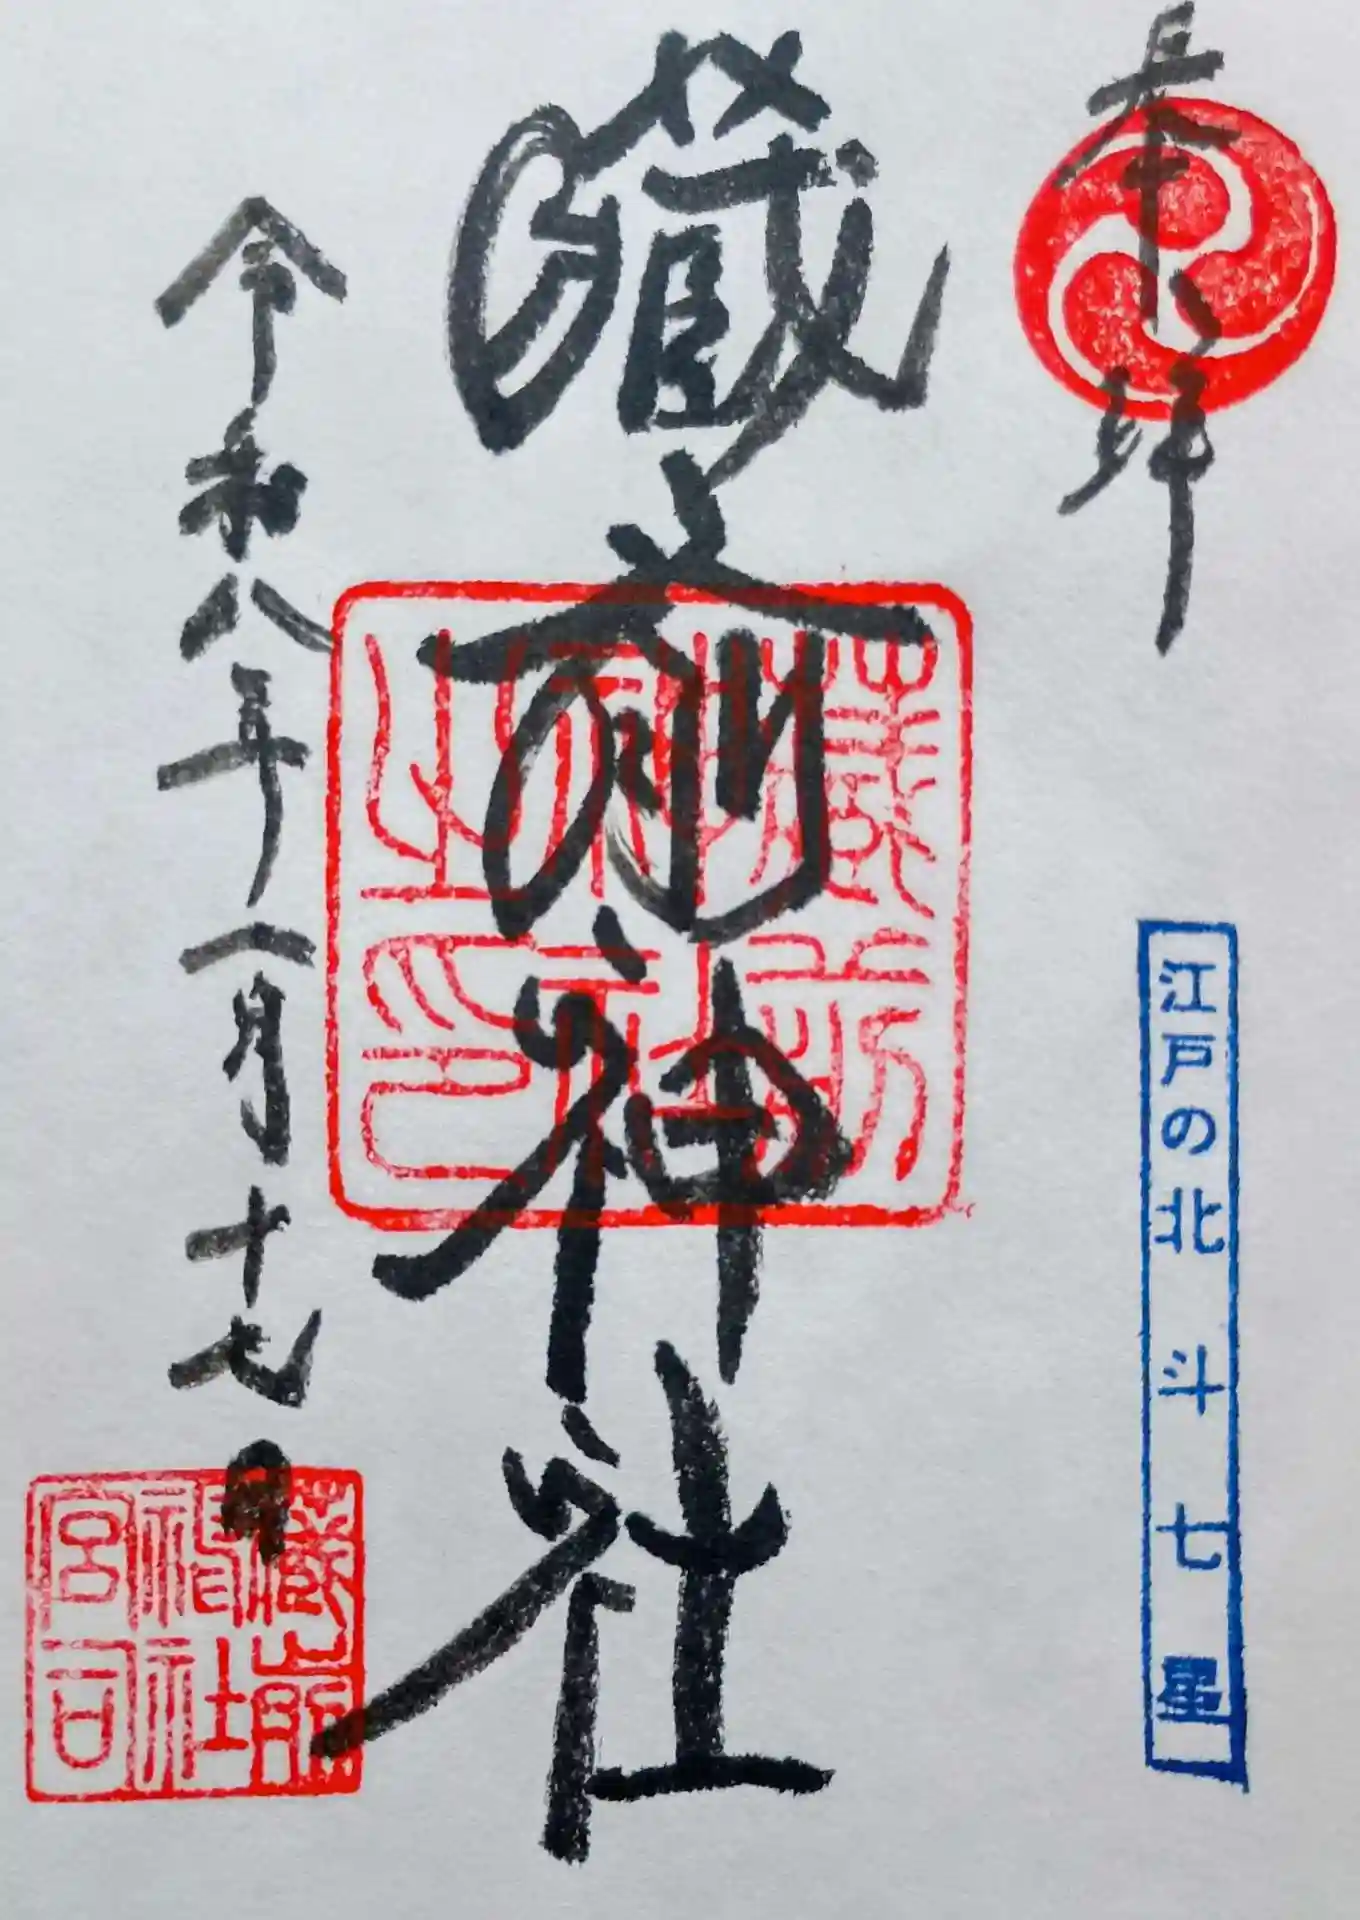 奉拝
江戸の北斗七星
蔵前神社
藏前神社之印
令和八年一月十七日
藏前神社宮司